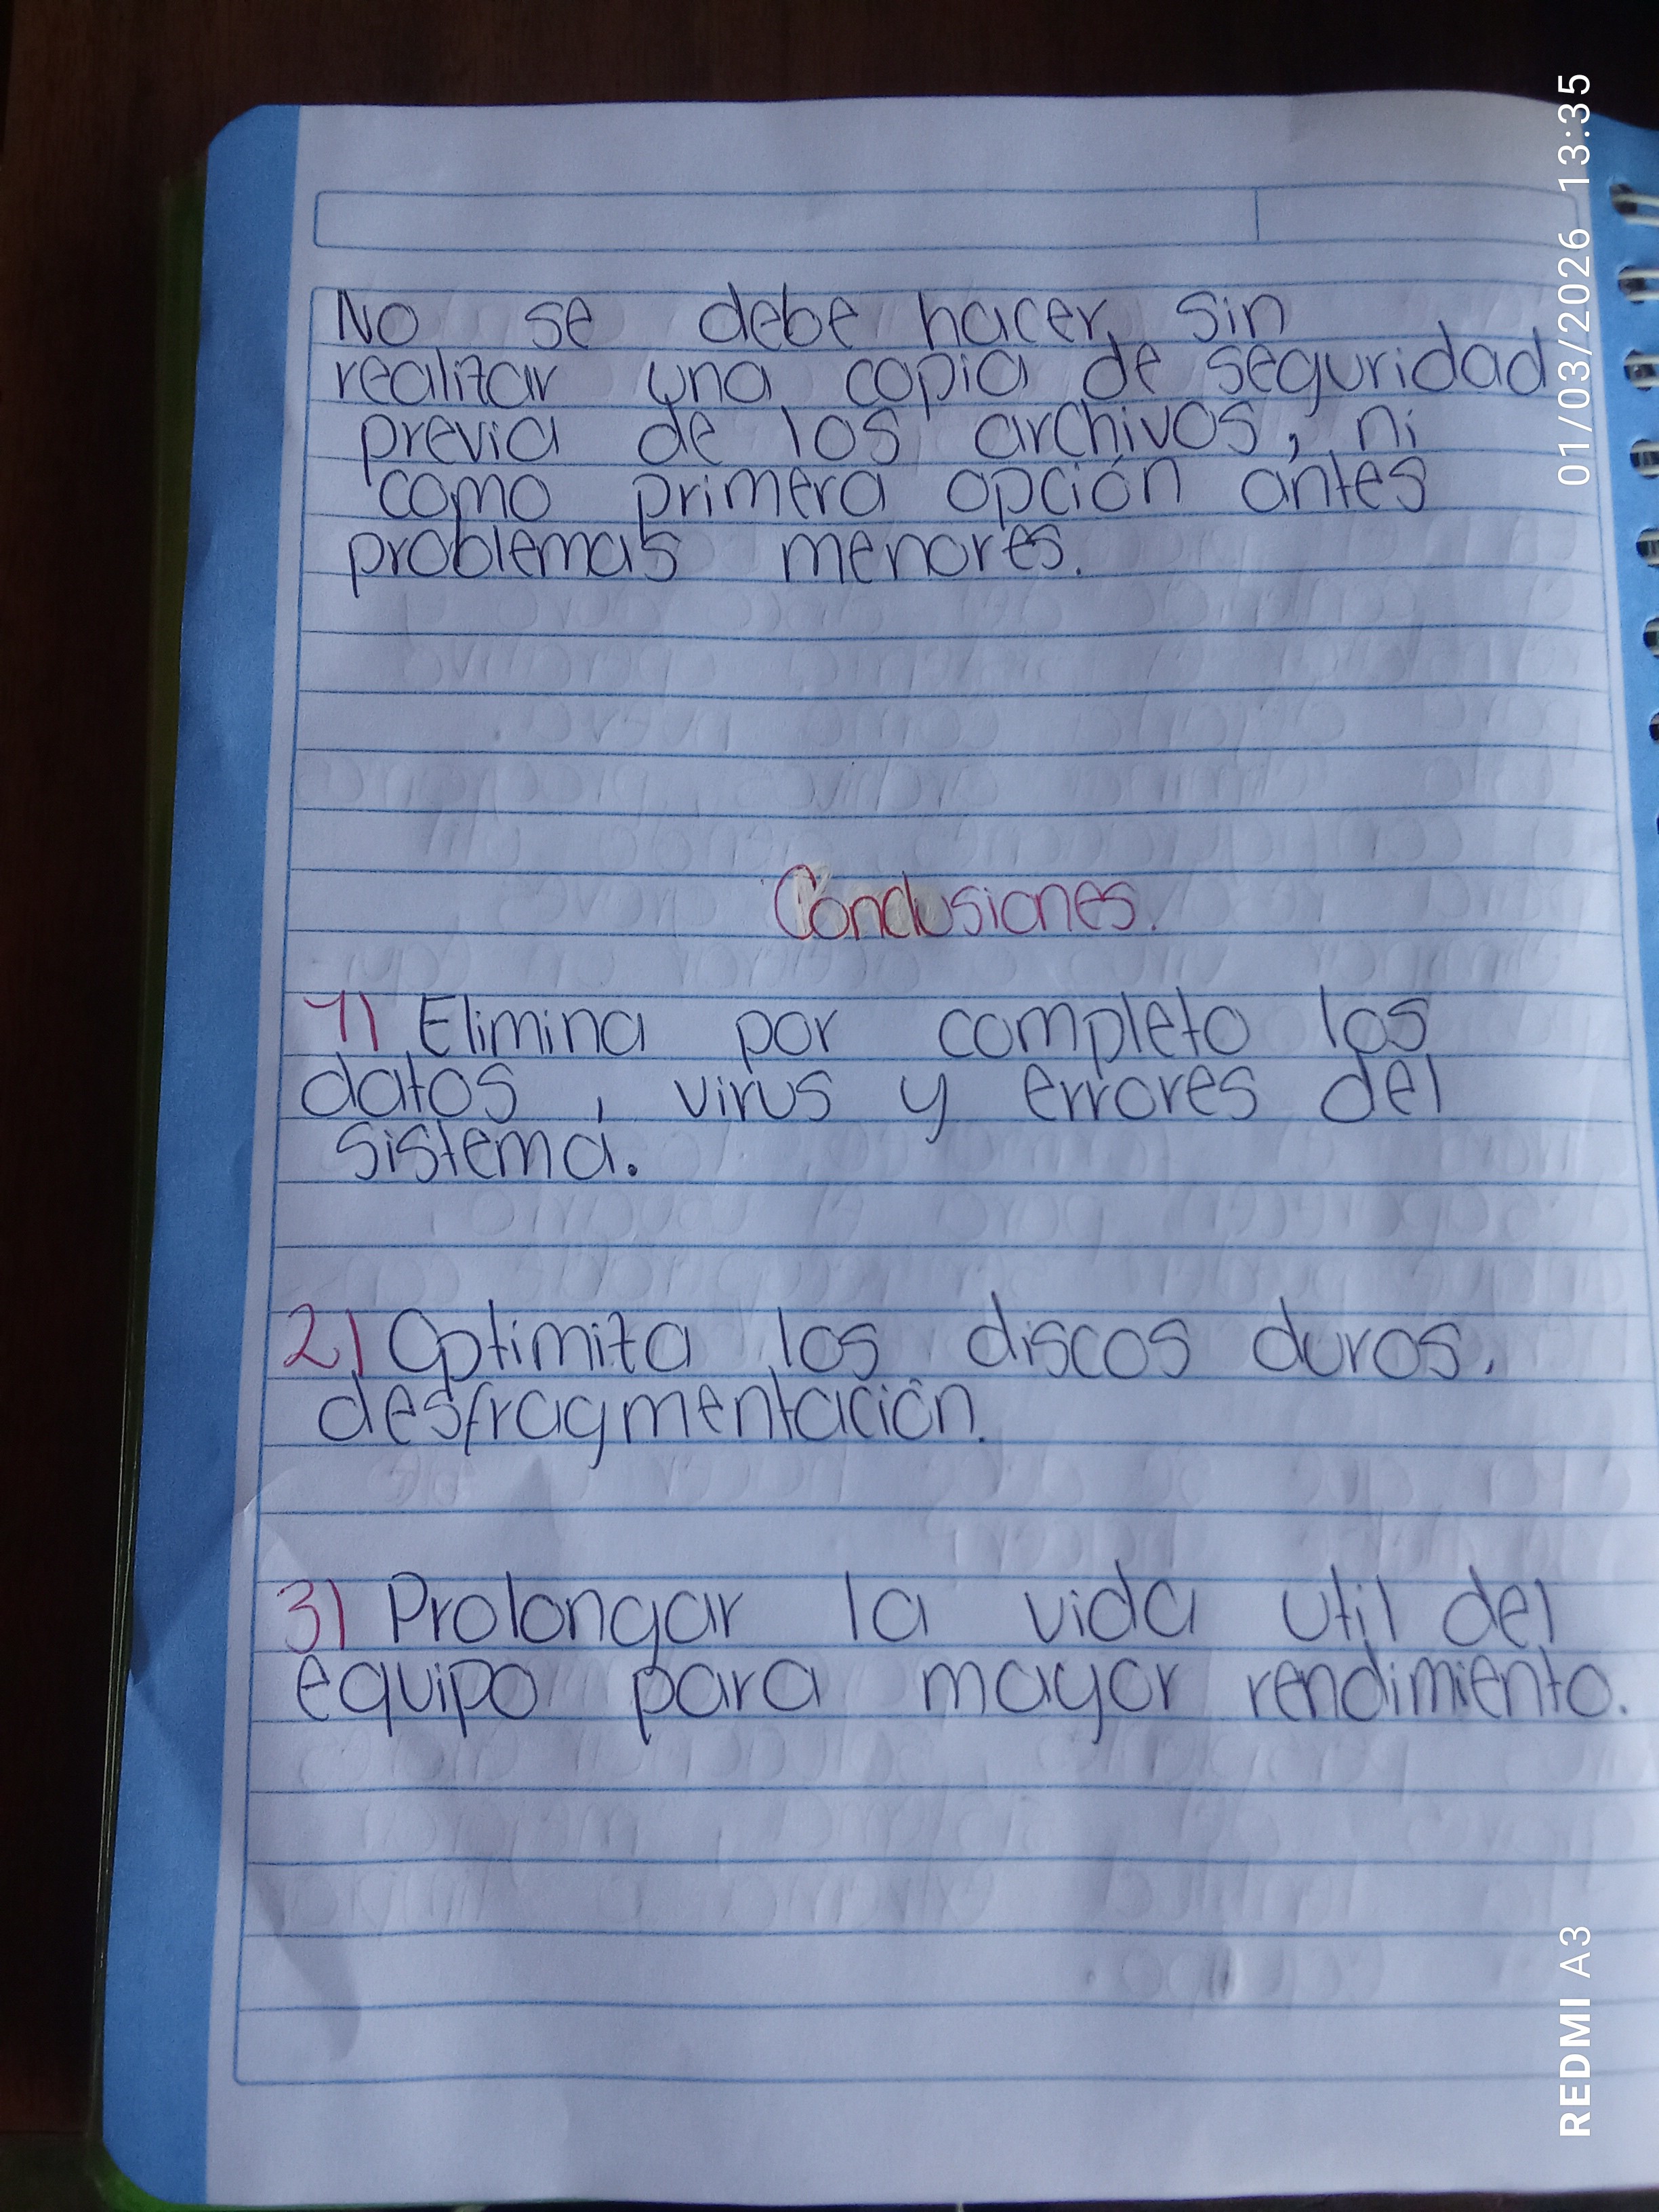 No se debe hacer sin
realizar una copia de seguridad
previa de los archivos, ni
como primera opción antes
problemas menores.
Conclusiones.
1) Elimina por completo los
datos, virus y errores del
sistema.
2) Optimiza los discos duros.
desfragmentación.
3) Prolongar la vida util del
equipo para mayor rendimiento.
01/03/2026 13:35
REDMI A3